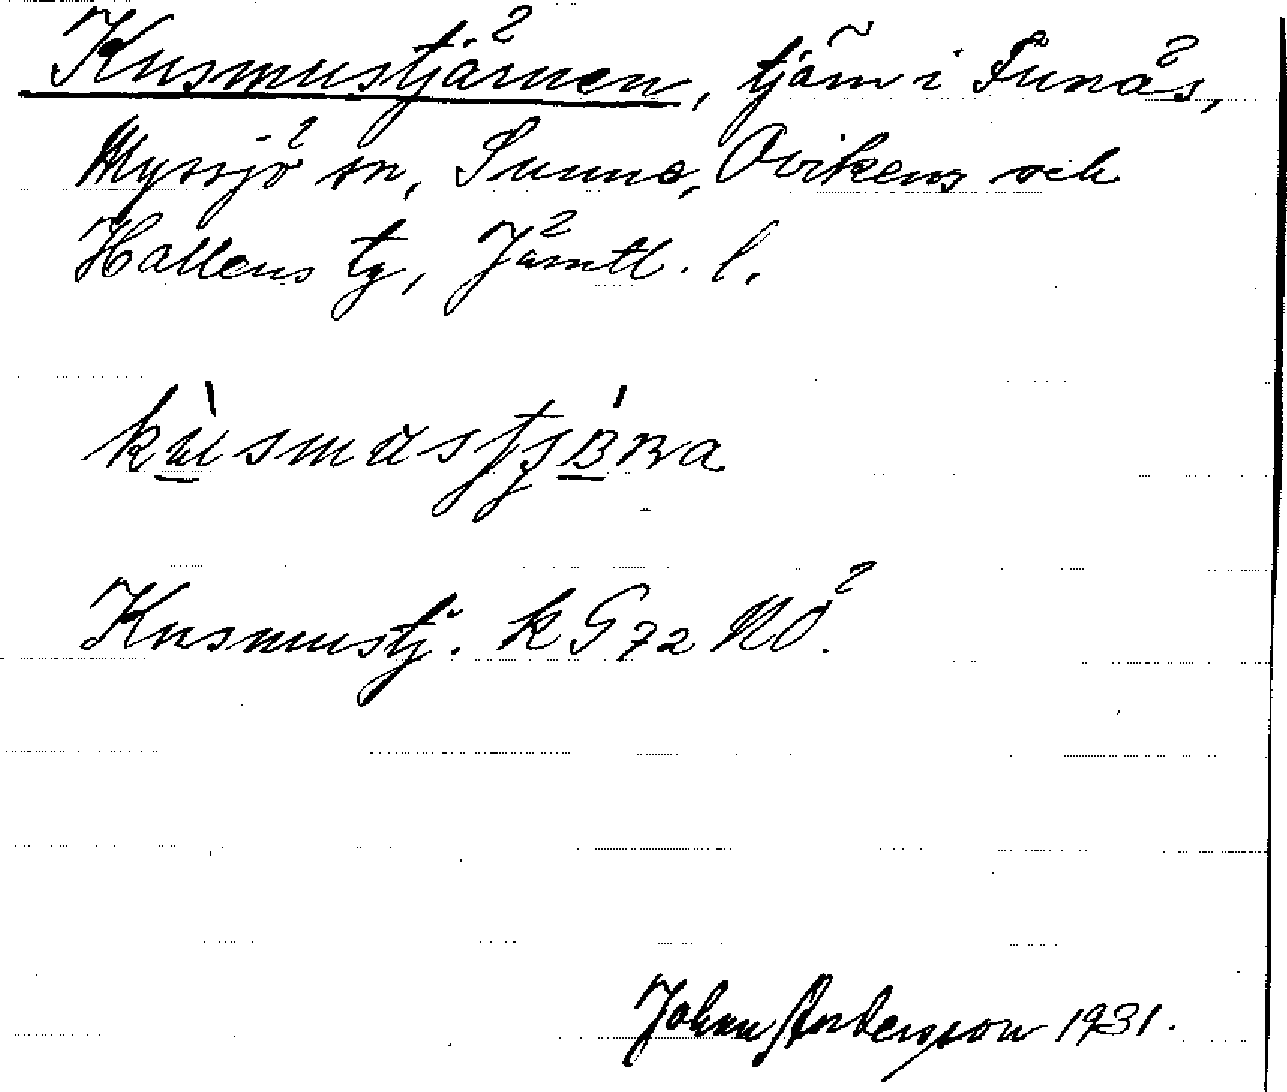 Kusmustjärnen, tjärn i Funäs,
Myssjö sn, Sunne, Ovikens och
Hallens tg, Jämtl. l.
Kusmustj. k G 72 NÖ.
Johan Andersson 1931.